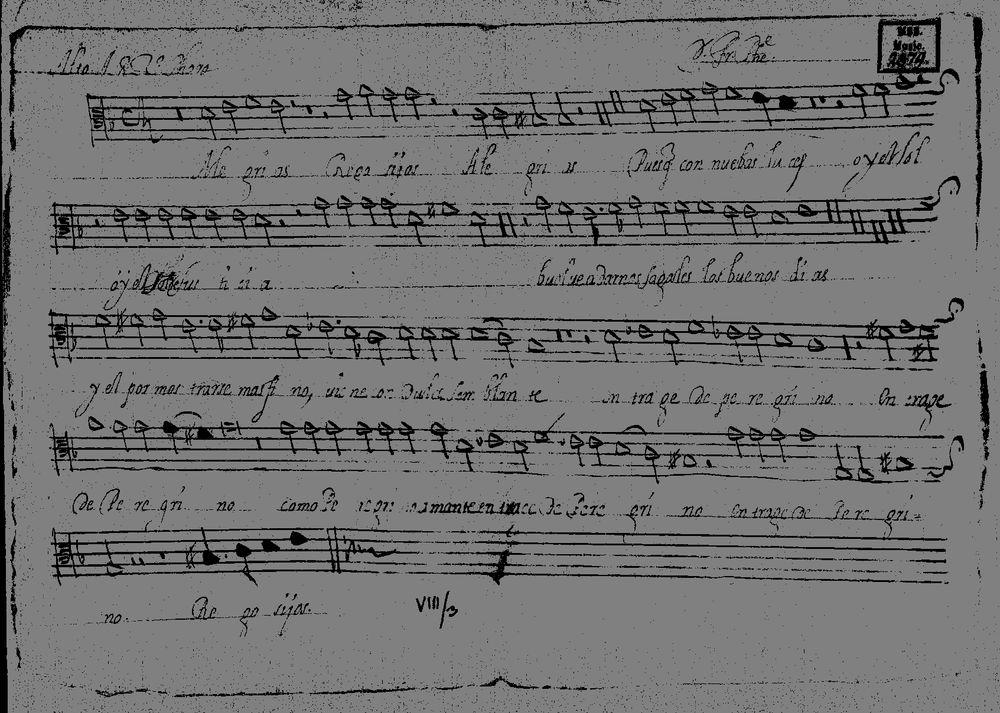 Alto
MSS. Music. 2872.
Ale gri as Rego sijos Ale gri as Pues q con nuebas lu ces oy el sol
oy el sol ti si a buelue a darnos sagales los buenos di as
y el por mos trarse mas fi no, vie ne on dulce sem blan te en tra ge de pe re gri no. En trage
de Pe re gri no como Pe regri no amante en trage de Pere gri no en trage de Pe re gri-
no. Re go sijos.
VIII/3